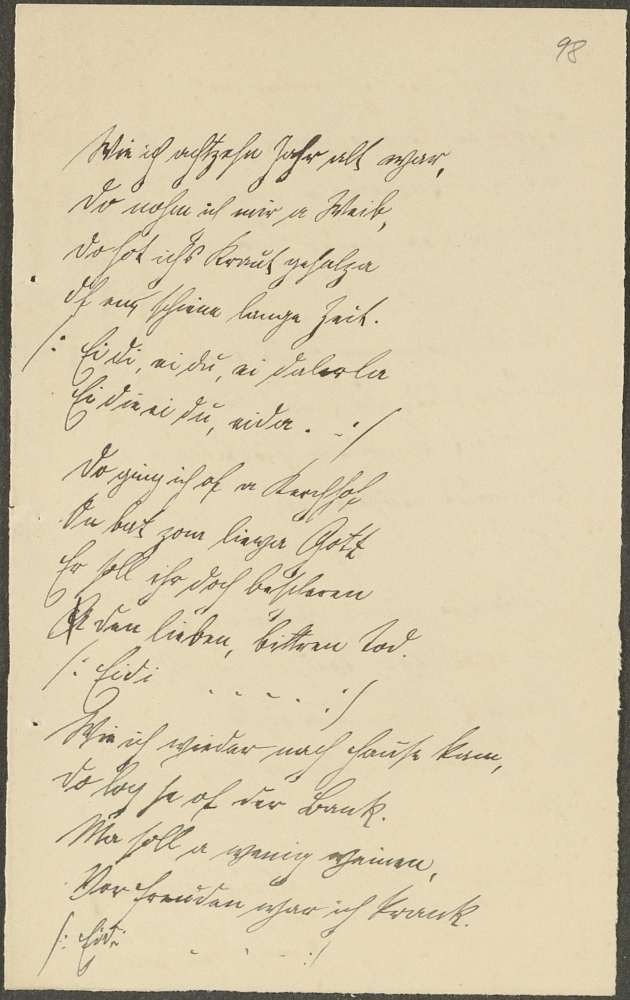 98
Wie ich achtzehn Jahr alt war,
Do nohm ich mir a Weib,
Do hot ichs Kraut gesolza
Of eng schiene lange Zeit.
/: Ei di, ei du, ei dalerla
Ei die ei du, eida. -:/
Do ging ich of a Kerchhof,
On bat zom liewa Gott
Er soll ihr doch bescheren
den lieben, bittren Tod.
/: Eidi - - - - :/
Wie ich wieder nach Hause kam,
Do log se of der Bank.
Ma soll a wenig weinen,
Vor Freuden war ich krank.
/: Eidi - - - :/